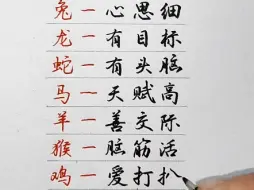 兔一心思细
龙一有目标
蛇一有头脑
马一天赋高
羊一善交际
猴一脑筋活
鸡一爱打扮